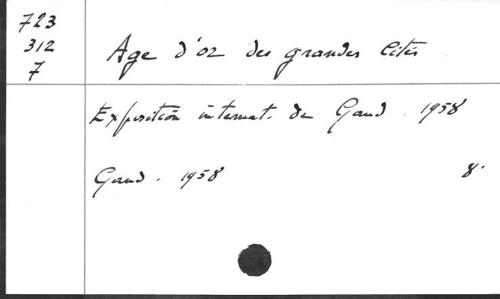 723
312
7
Age d'or des grandes Cités
Exposition internat. de Gand. 1958
Gand. 1958 8°